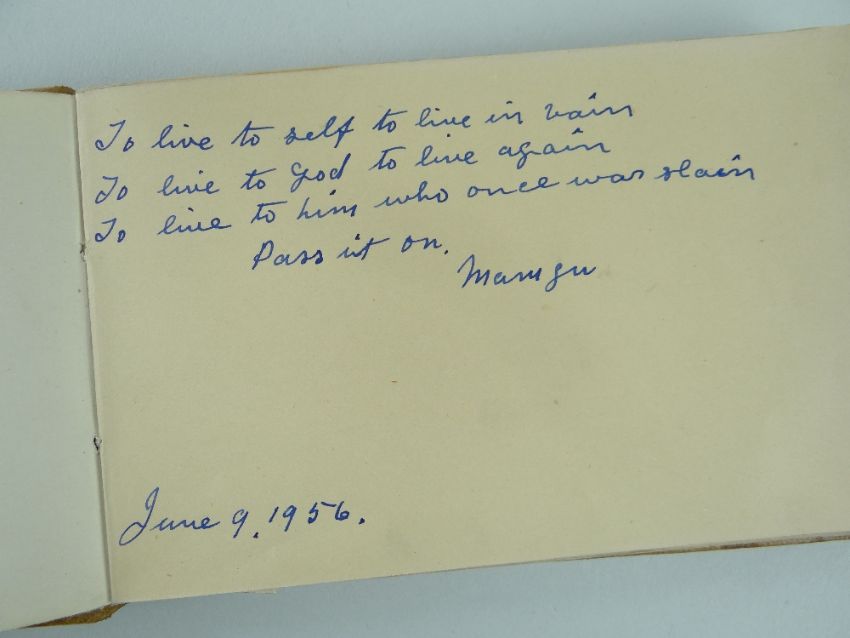 To live to self to live in vain
To live to God to live again
To live to him who once was slain
Pass it on.
June 9, 1956.